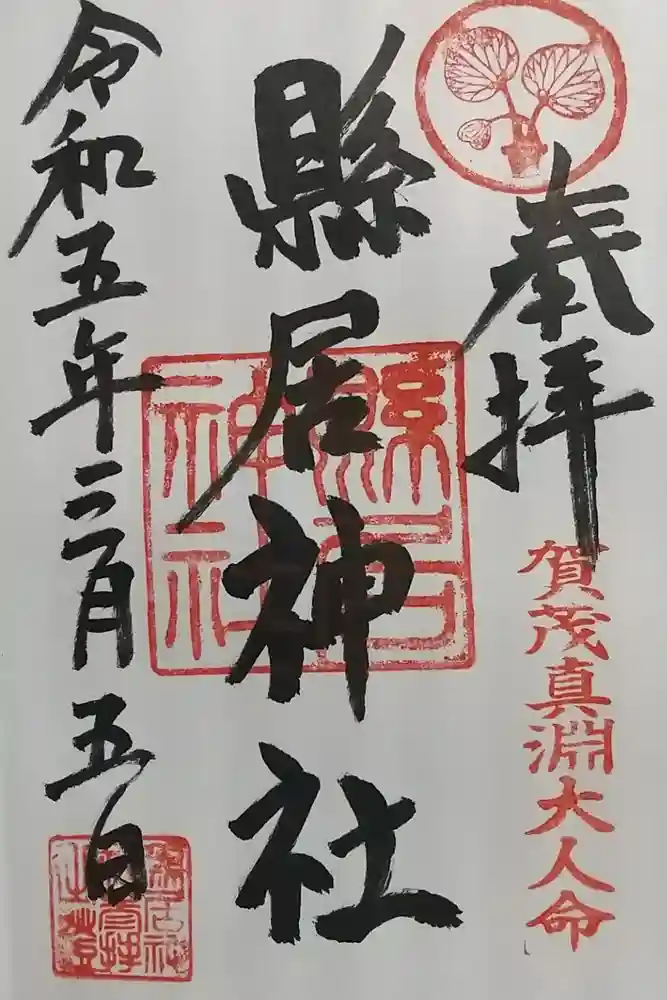 奉拝
賀茂真淵大人命
縣居神社
縣居神社
令和五年二月五日